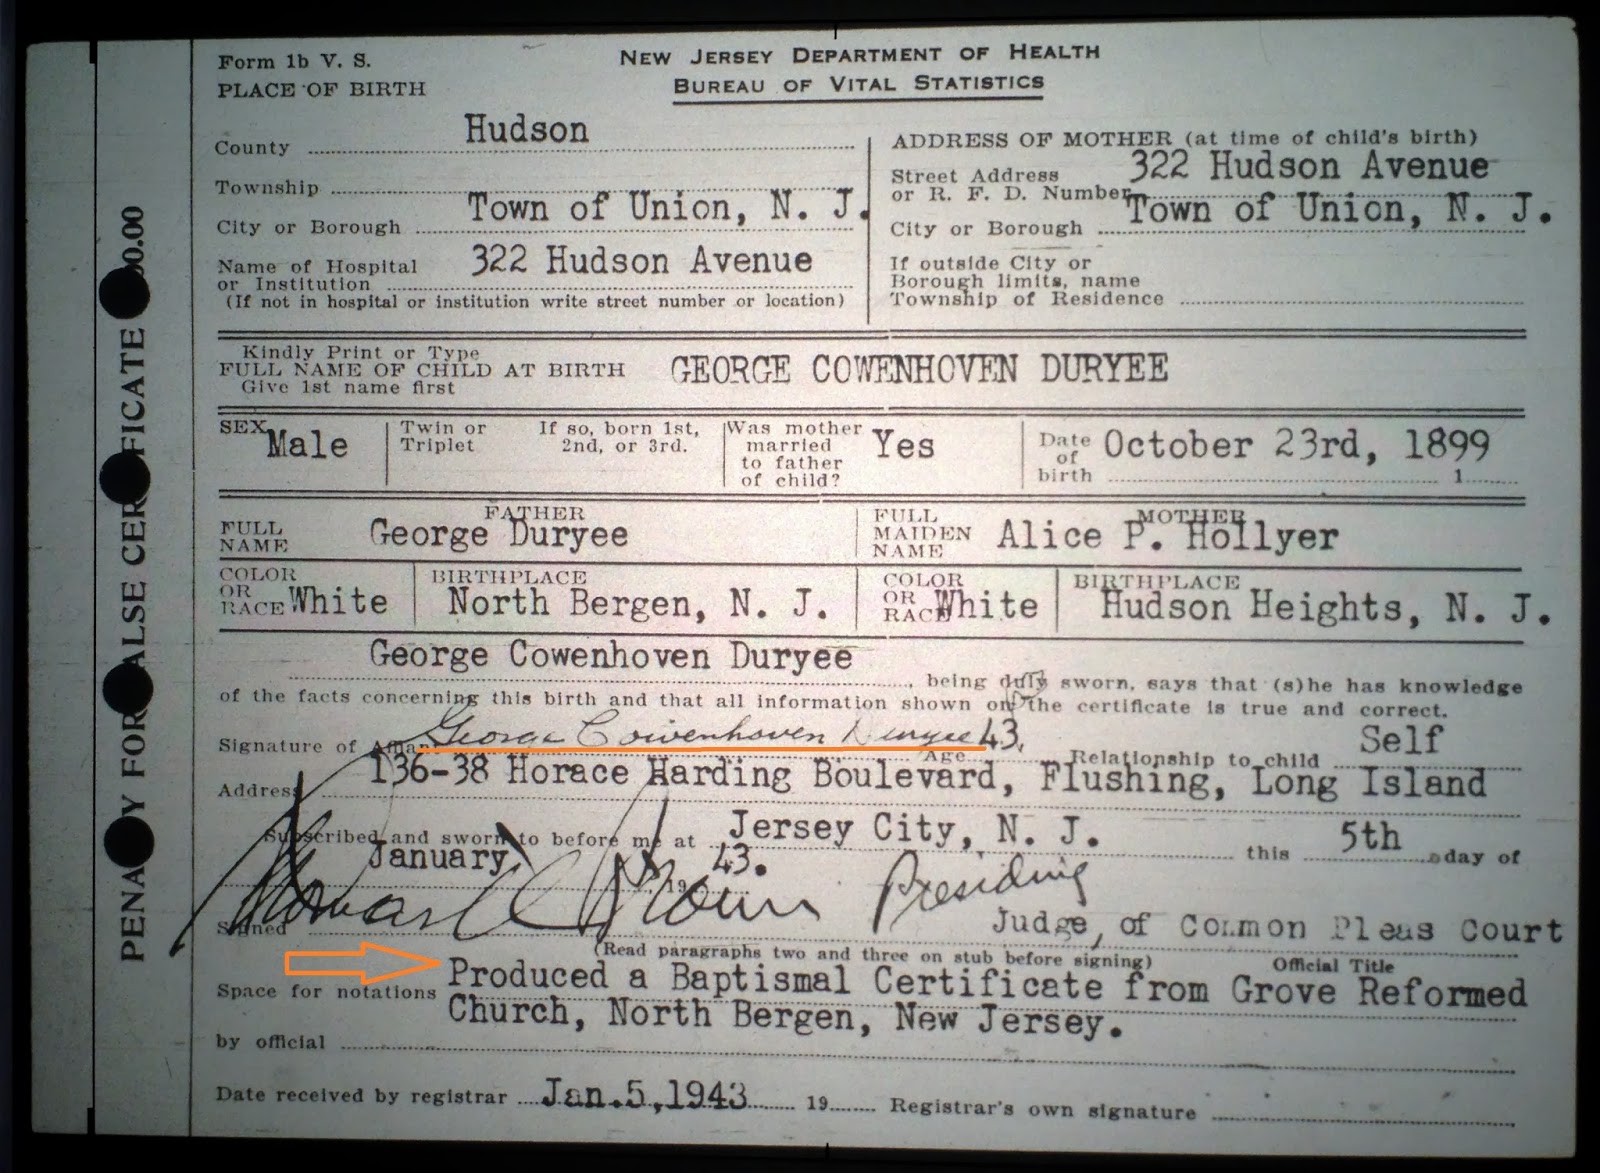 Form 1b V. S.
NEW JERSEY DEPARTMENT OF HEALTH
PLACE OF BIRTH
BUREAU OF VITAL STATISTICS
County Hudson
Township
City or Borough Town of Union, N. J.
Name of Hospital or Institution 322 Hudson Avenue
(If not in hospital or institution write street number or location)
ADDRESS OF MOTHER (at time of child's birth)
Street Address or R. F. D. Number 322 Hudson Avenue
City or Borough Town of Union, N. J.
If outside City or
Borough limits, name
Township of Residence
Kindly Print or Type
FULL NAME OF CHILD AT BIRTH GEORGE COWENHOVEN DURYEE
Give 1st name first
SEX Male
Twin or Triplet
If so, born 1st, 2nd, or 3rd.
Was mother married to father of child? Yes
Date of birth October 23rd, 1899
1
FATHER
FULL NAME George Duryee
MOTHER
FULL MAIDEN NAME Alice P. Hollyer
COLOR OR RACE White
BIRTHPLACE North Bergen, N. J.
COLOR OR RACE White
BIRTHPLACE Hudson Heights, N. J.
George Cowenhoven Duryee
being duly sworn, says that (s)he has knowledge
of the facts concerning this birth and that all information shown on the certificate is true and correct.
Signature of Affiant George Cowenhoven Duryee Age 43. Relationship to child Self
Address 136-38 Horace Harding Boulevard, Flushing, Long Island
Subscribed and sworn to before me at Jersey City, N. J. this 5th day of
January, 19 43.
Signed Presiding
Judge, of Common Pleas Court
(Read paragraphs two and three on stub before signing) Official Title
Space for notations Produced a Baptismal Certificate from Grove Reformed
Church, North Bergen, New Jersey.
by official
Date received by registrar Jan.5,1943 19 Registrar's own signature
PENALTY FOR FALSE CERTIFICATE 00.00